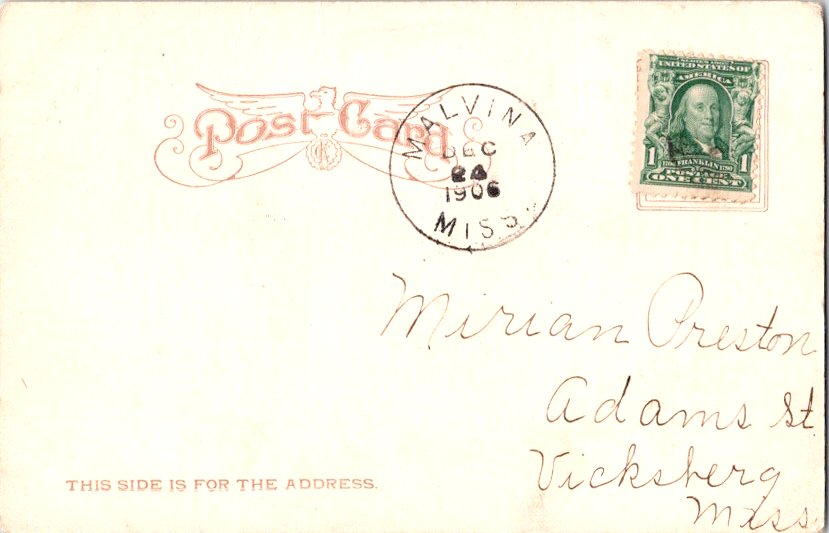 Post Card
MALVINA
DEC
24
1906
MISS.
UNITED STATES OF
AMERICA
1
FRANKLIN
1
POSTAGE
ONE CENT
Mirian Preston
Adams St
Vicksberg
Miss
THIS SIDE IS FOR THE ADDRESS.